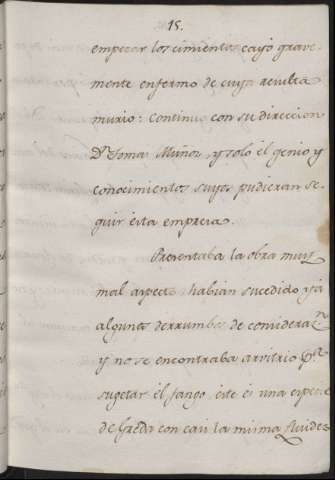 15.
empezar los cimientos cayó grave-
mente enfermo de cuya resulta
murio: continuó con su direccion
Dn. Tomas Muñoz, y solo el genio y
conocimientos suyos pudieran se-
guir esta empresa.
Presentaba la obra muy
mal aspecto, habian sucedido ya
algunos derrumbes de consideran.
y no se encontraba arvitrio pr.
sugetar el fango, este es una especie
de Greda con casi la misma fluidez